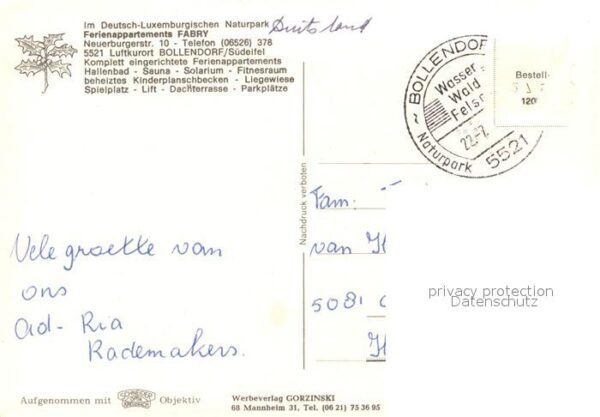 Im Deutsch-Luxemburgischen Naturpark
Duitsland
Ferienappartements FABRY
Neuerburgerstr. 10 - Telefon (06526) 378
5521 Luftkurort BOLLENDORF/Südeifel
Komplett eingerichtete Ferienappartements
Hallenbad - Sauna - Solarium - Fitnesraum
beheiztes Kinderplanschbecken - Liegewiese
Spielplatz - Lift - Dachterrasse - Parkplätze
BOLLENDOR
Wasser
Wald
Fels
22.
Naturpark
5521
Bestell-
120
Nachdruck verboten
Fam.
van H
5081
H
Vele groette van
ons
Ad- Ria
Rademakers.
privacy protection
Datenschutz
Aufgenommen mit SCHNEIDER KREUZNACH Objektiv
Werbeverlag GORZINSKI
68 Mannheim 31, Tel. (06 21) 75 36 95